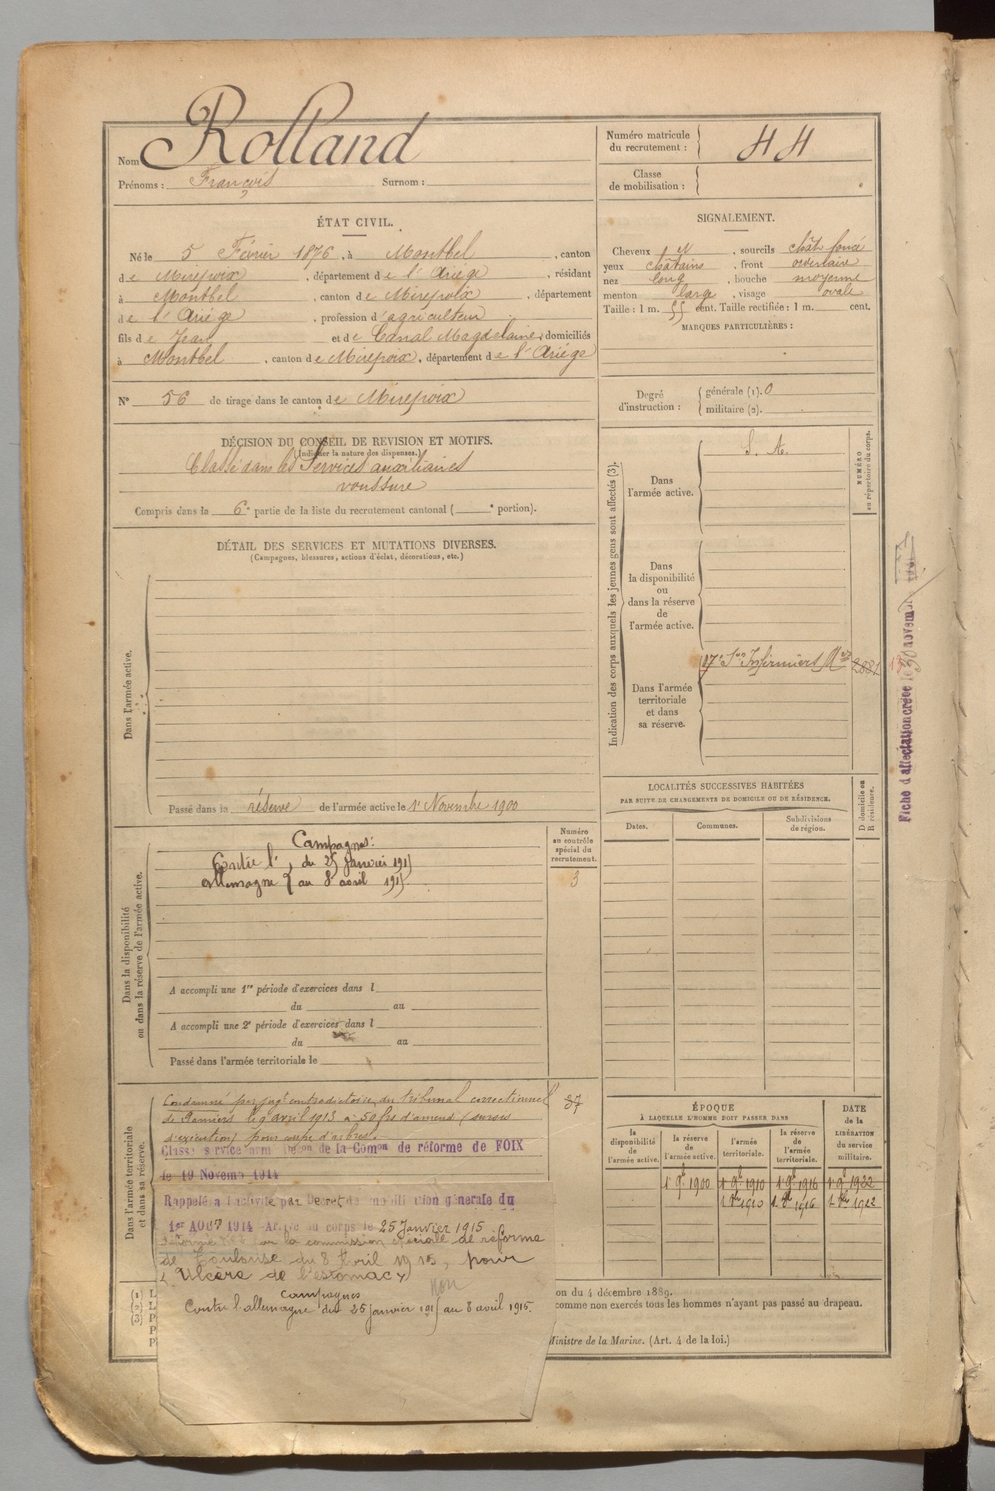 Nom Rolland
Prénoms : François Surnom :
Numéro matricule du recrutement : 44
Classe de mobilisation :
ÉTAT CIVIL.
Né le 5 Février 1876, à Montbel, canton
de Mirepoix, département de l'Ariège, résidant
à Montbel, canton de Mirepoix, département
de l'Ariège, profession d'agriculteur
fils de Jean et de Canal Magdelaine, domiciliés
à Montbel, canton de Mirepoix, département de l'Ariège
N° 56 de tirage dans le canton de Mirepoix
SIGNALEMENT.
Cheveux N, sourcils chât foncé
yeux châtains, front ordinaire
nez long, bouche moyenne
menton large, visage ovale
Taille : 1 m. 55 cent. Taille rectifiée : 1 m. cent.
MARQUES PARTICULIÈRES :
Degré d'instruction : générale (1). 0
militaire (2).
DÉCISION DU CONSEIL DE REVISION ET MOTIFS.
(Indiquer la nature des dispenses.)
Classé dans les Services auxiliaires
voussure
Compris dans la 6e partie de la liste du recrutement cantonal ( e portion).
DÉTAIL DES SERVICES ET MUTATIONS DIVERSES.
(Campagnes, blessures, actions d'éclat, décorations, etc.)
Dans l'armée active.
Passé dans la réserve de l'armée active le 1r Novembre 1900
Indication des corps auxquels les jeunes gens sont affectés (3).
Dans l'armée active.
S. A.
NUMÉRO au répertoire du corps.
Dans la disponibilité ou dans la réserve de l'armée active.
17e Son Infirmiers Mres
2881
Dans l'armée territoriale et dans sa réserve.
Fiche d'affectation créée le 30 novembre
LOCALITÉS SUCCESSIVES HABITÉES
PAR SUITE DE CHANGEMENTS DE DOMICILE OU DE RÉSIDENCE.
D domicile ou R résidence.
Dates. Communes. Subdivisions de région.
Dans la disponibilité ou dans la réserve de l'armée active.
Campagnes :
Contre l' du 25 Janvier 1915
Allemagne au 8 avril 1915
Numéro au contrôle spécial du recrutement.
3
A accompli une 1re période d'exercices dans l
du au
A accompli une 2e période d'exercices dans l
du au
Passé dans l'armée territoriale le
Dans l'armée territoriale et dans sa réserve.
Condamné par jugt contradictoire du tribunal correctionnel
de Pamiers le 9 avril 1913 à 50 frs d'amende (sursis
d'exécution) pour coupe d'arbres.
37
Classé service armé de la Comon de réforme de FOIX
le 19 Novemb 1914
Rappelé à l'activité par Décret de mobilisation générale du
1er AOUT 1914 Arrivé au corps le 25 Janvier 1915
par la commission spéciale de réforme
de Toulouse du 8 Avril 1915, pour
"Ulcère de l'estomac"
non
campagnes
Contre l'allemagne du 25 janvier 1915 au 8 avril 1915.
ÉPOQUE
À LAQUELLE L'HOMME DOIT PASSER DANS
la disponibilité de l'armée active. la réserve de l'armée active. l'armée territoriale. la réserve de l'armée territoriale.
DATE de la LIBÉRATION du service militaire.
1r 9b 1900 1r 9b 1910 1r 9b 1916 1r 9b 1922
1r 8bre 1910 1r 8b 1916 1r 8bre 1922
(1) L
(2) L
(3) P
on du 4 décembre 1889.
comme non exercés tous les hommes n'ayant pas passé au drapeau.
Ministre de la Marine. (Art. 4 de la loi.)